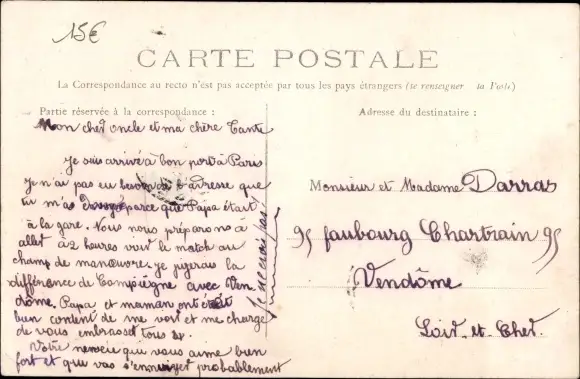 15€
CARTE POSTALE
La Correspondance au recto n'est pas acceptée par tous les pays étrangers (se renseigner la Poste.)
Partie réservée à la correspondance :
Mon cher oncle et ma chère Tante
Je suis arrivé à bon port à Paris
Je n'ai pas eu besoin de l'adresse que
tu m'as parce que Papa était
à la gare. Nous nous préparons à
aller à 2 heures voir le match au
champ de manœuvre. je jugerais la
différence de Compiègne avec Ven
dôme. Papa et maman ont été
bien content de me voir et me charge
de vous embrasser tous
Votre neveu qui vous aime bien
fort et qui vas s'ennuyer probablement
Adresse du destinataire :
Monsieur et Madame Darras
95 faubourg Chartrain 95
Vendôme
Loir et Cher.